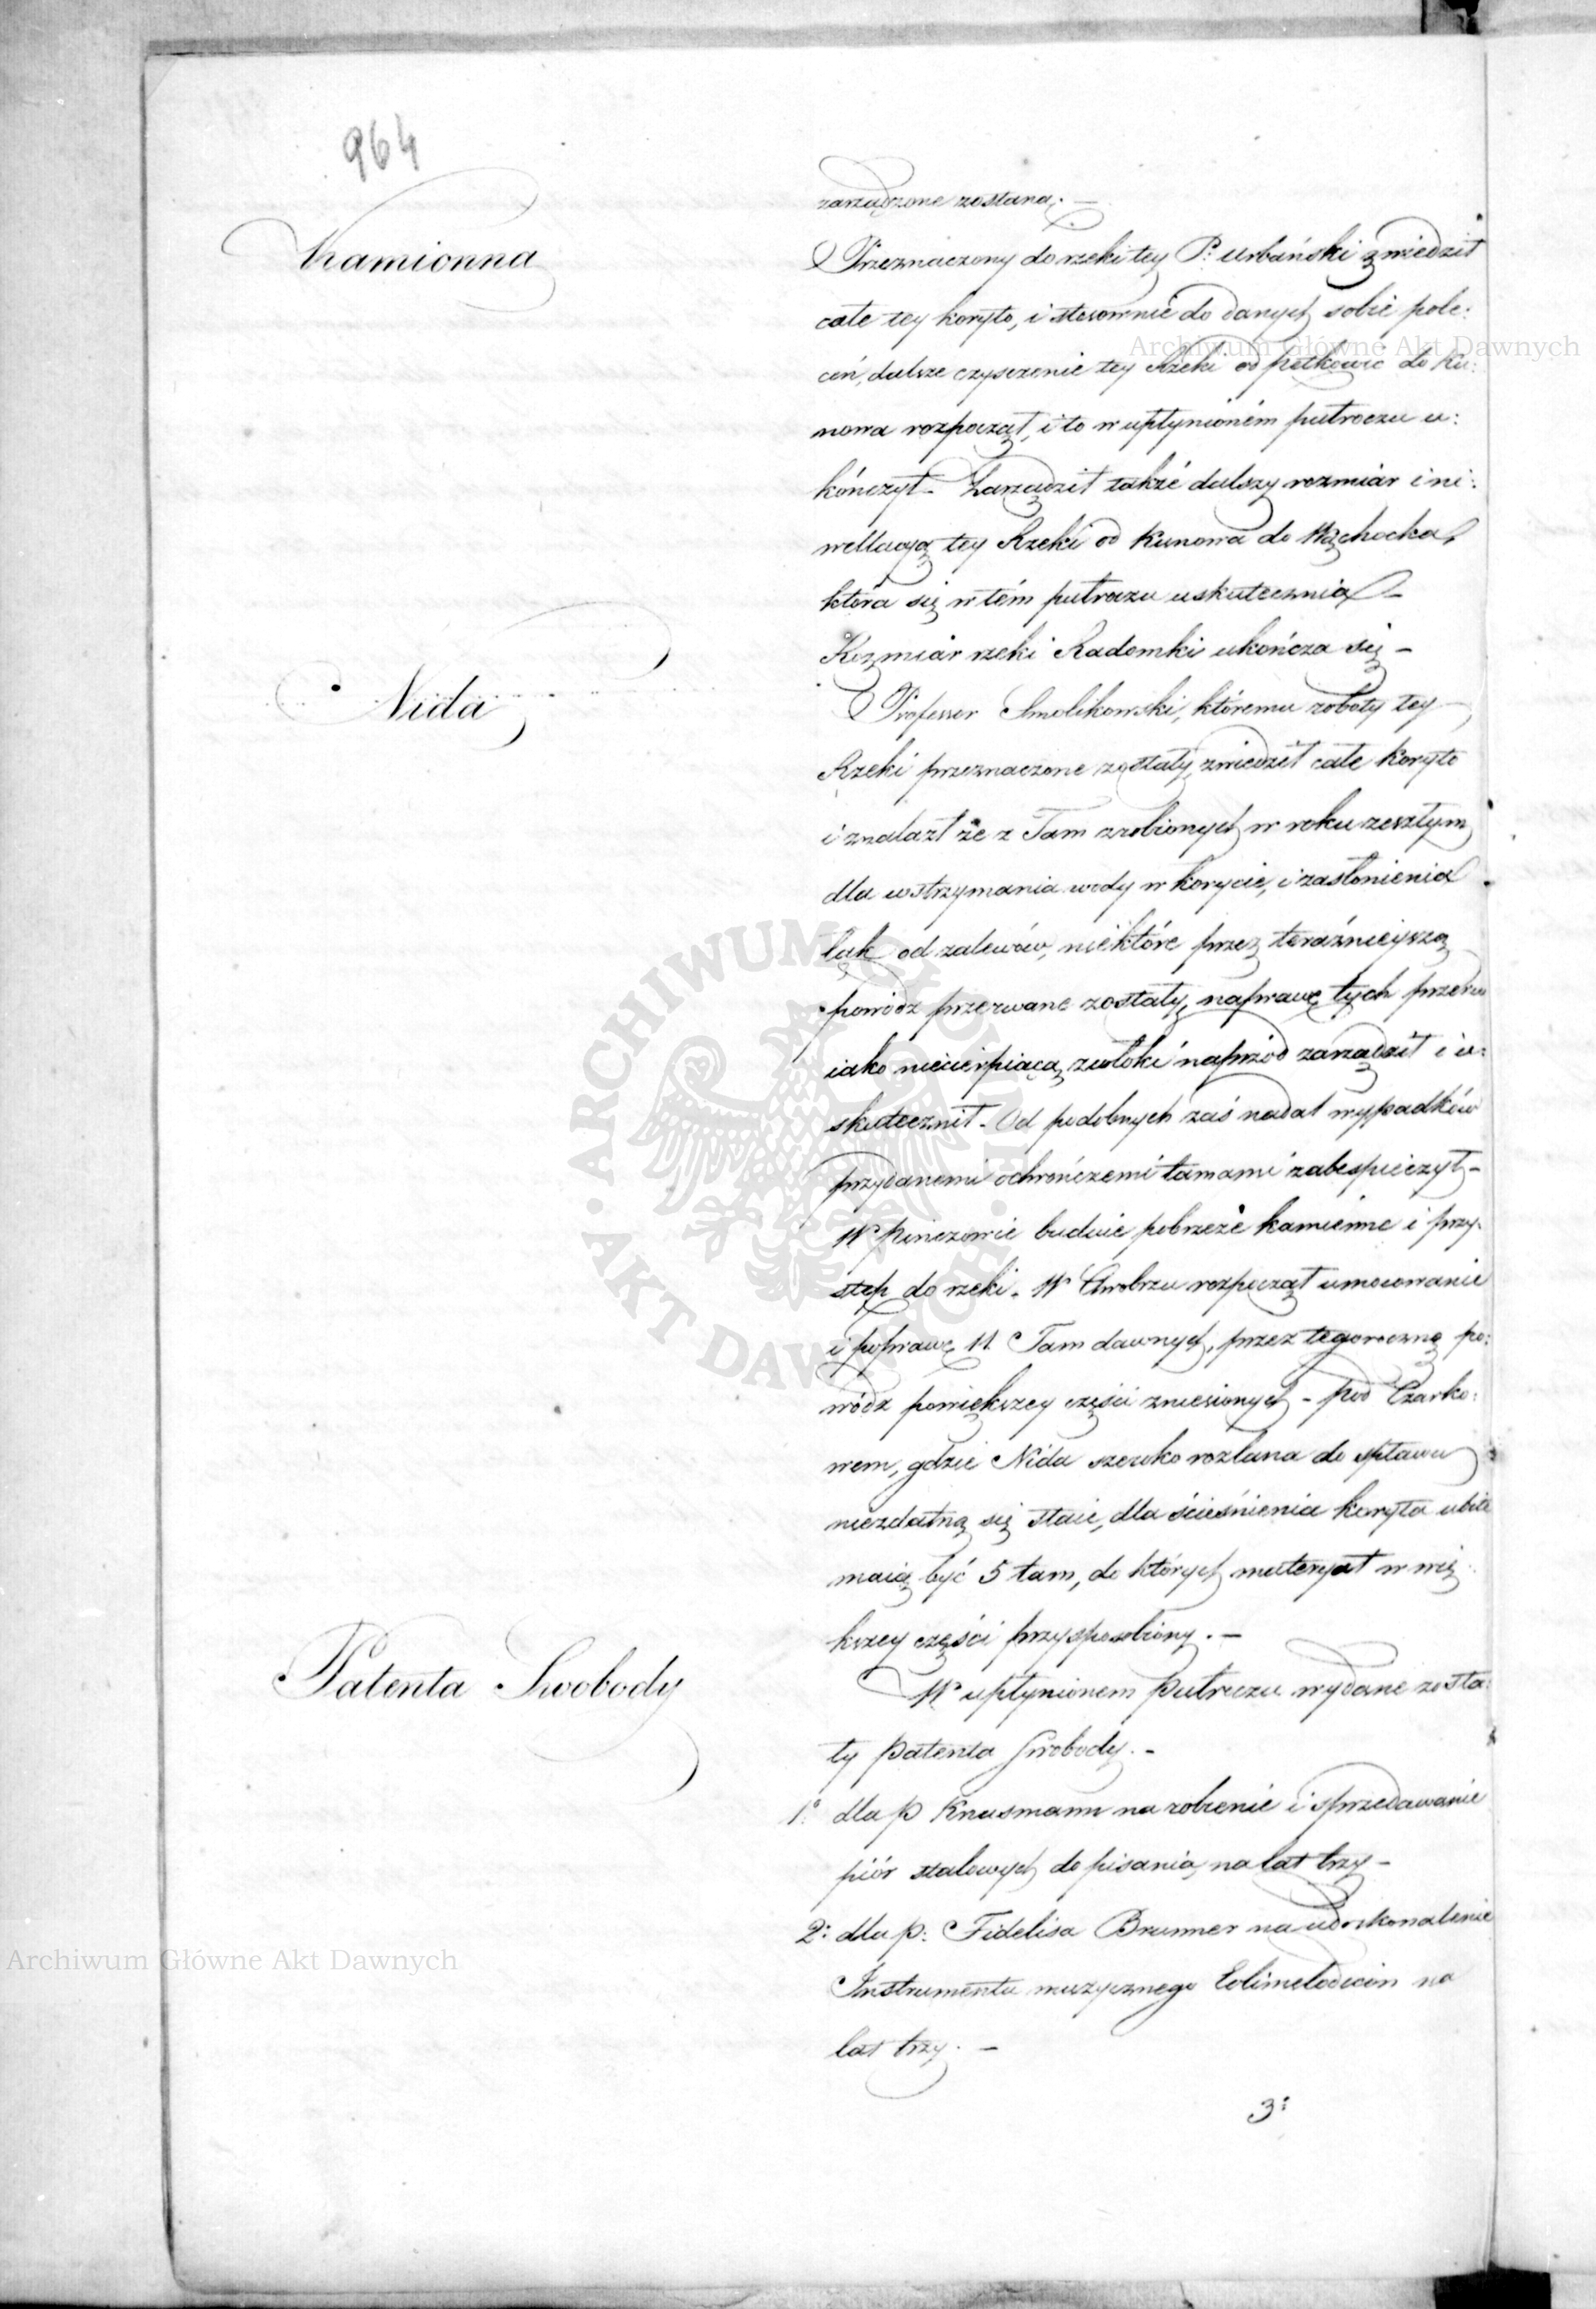 964
zarządzone zostaną. —
Kamionna
Przeznaczony do rzeki tey P: Urbański zwiedził
całe tey koryto, i stosownie do danych sobie pole:
ceń, dalsze czyszczenie tey Rzeki od Petkowic do Ku:
nowa rozpoczął, i to w upłynioném pułroczu u:
kończył – Zarządził także dalszy rozmiar i ni:
wellacyą tey Rzeki od Kunowa do Wąchocka,
która się w tém pułroczu uskutecznia –
Rozmiar rzeki Radomki ukończa się –
Nida
Professor Smolikowski, któremu roboty tey
Rzeki przeznaczone zostały, zwiedził całe koryto
i znalazł że z Tam zrobionych w roku zeszłym
dla wstrzymania wody w korycie, i zasłonienia
łąk od zalewów, niektóre przez teraźnieyszą
powódz przerwane zostały, naprawę tych przerw
iako niecierpiącą zwłoki naprzód zarządził i u:
skutecznił – Od podobnych zaś nadal wypadków
przydanemi ochrończemi tamami zabespieczył –
W Pinczowie buduie pobrzeże kamienne i przy:
stęp do rzeki. W Chrobrzu rozpoczął umocowanie
i poprawę 11 Tam dawnych, przez tegoroczną po:
wódz powiększey części zniesionych – pod Czarko:
wem, gdzie Nida szeroko rozlana do spławu
niezdatną się staie, dla ścieśnienia koryta ubite
maią być 5 tam, do których materyał w wię:
kszey części przysposobiony. —
Patenta Swobody
W upłynionem Pułroczu wydane zosta:
ły Patenta Swobody. –
1º dla P Knusmann na robienie i sprzedawanie
piór stalowych do pisania, na lat trzy –
2: dla P: Fidelisa Brunner na udoskonalenie
Instrumentu muzycznego Eolimelodicon na
lat trzy. —
3:
Archiwum Główne Akt Dawnych
Archiwum Główne Akt Dawnych
ARCHIWUM GŁÓWNE AKT DAWNYCH